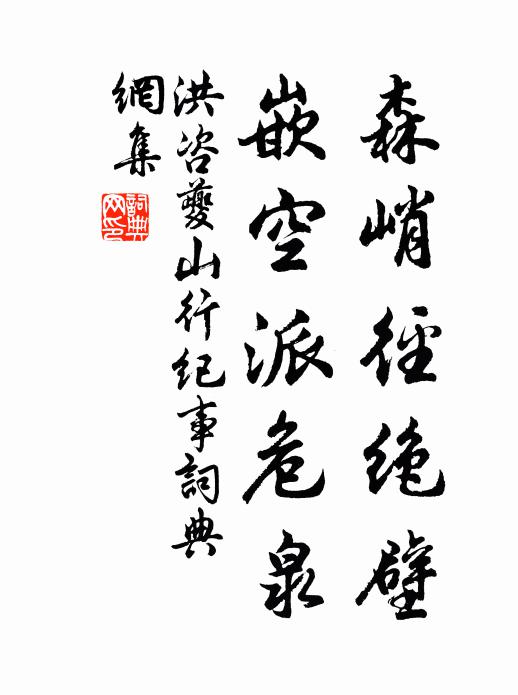 森峭徑絶壁
嵌空派危泉
洪咨夔山行紀事詞典
網集
詞典
网印